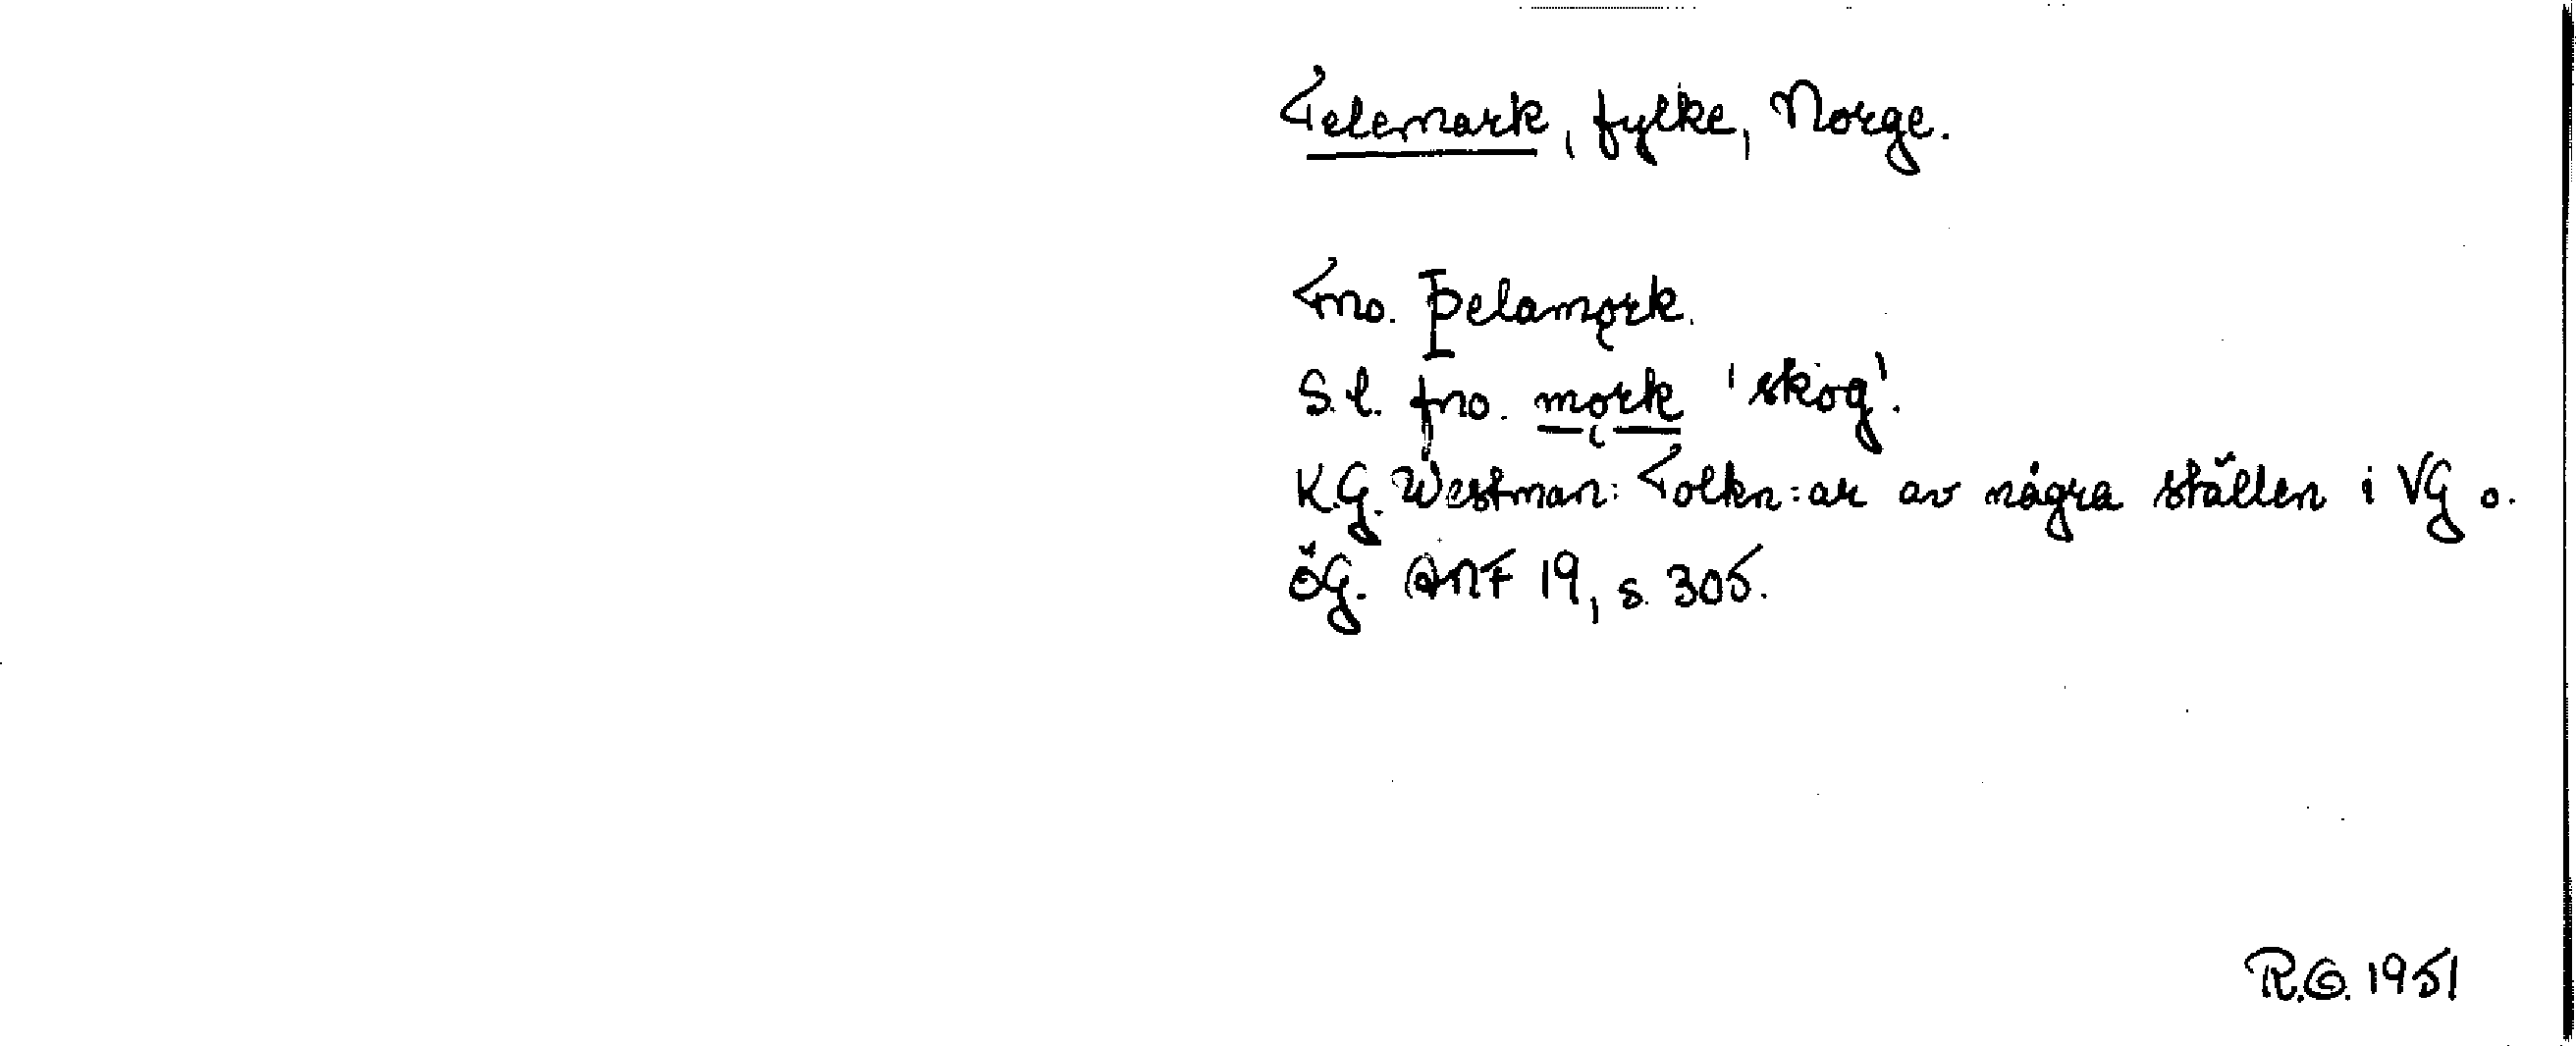 Telemark, fylke, Norge.
Fno. Þelamǫrk.
S.l. fno. mǫrk 'skog'.
K.G. Westman: Folkn:ar av några ställen i VG o.
ÖG. ANF 19, s. 305.
R.G. 1951